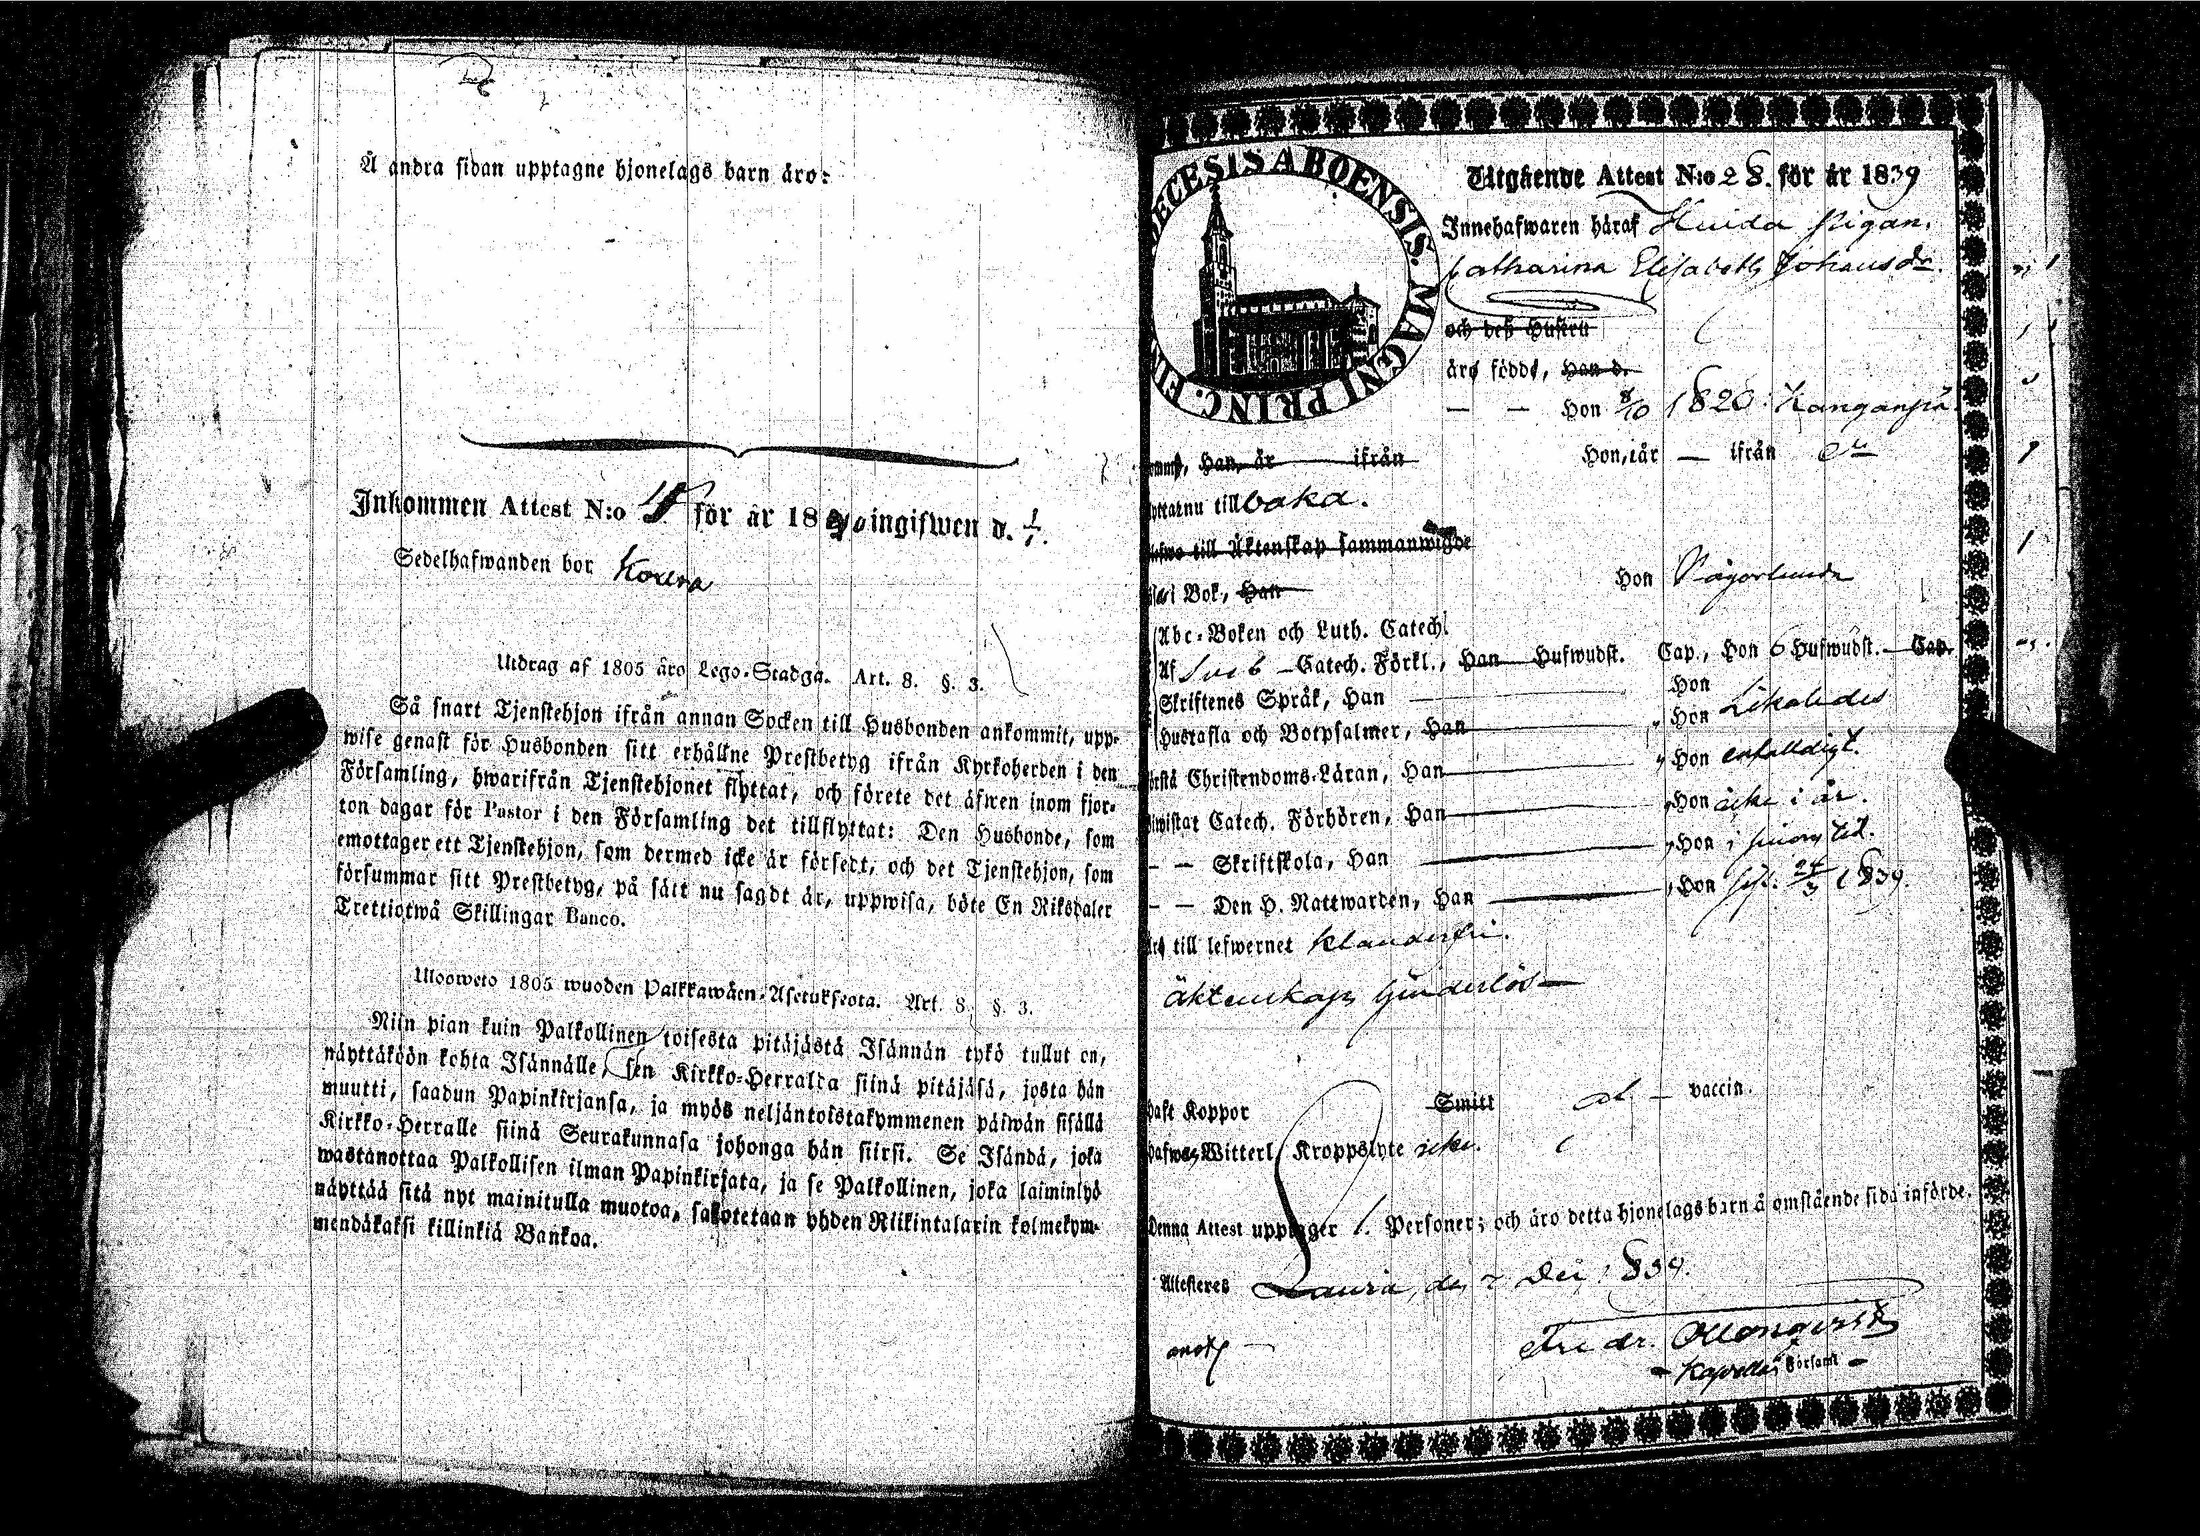 Å andra sidan upptagne hjonelags barn äro:
Inkommen Attest N:o 15 för år 1840 ingifwen d. 1/1.
Sedelhafwanden bor
Utdrag af 1805 års Lego-Stadga. Art. 8. §. 3.
Så snart Tjenstehjon ifrån annan Socken till Husbonden ankommit, upp-
wise genast för Husbonden sitt erhållne Prestbetyg ifrån Kyrkoherden i den
Församling, hwarifrån Tjenstehjonet flyttat, och förete det äfwen inom fjor-
ton dagar för Pastor i den Församling det tillflyttat: Den Husbonde, som
emottager ett Tjenstehjon, som dermed icke är försedt, och det Tjenstehjon, som
försummar sitt Prestbetyg, på sätt nu sagdt är, uppwisa, böte En Riksdaler
Trettiotwå Skillingar Banco.
Ulosweto 1805 wuoden Palkkawäen-Asetuksesta. Art. 8. §. 3.
Niin pian kuin Palkollinen toisesta pitäjästä Isännän tykö tullut on,
näyttäköön kohta Isännälle, sen Kirkko-Herralda siinä pitäjäsä, josta hän
muutti, saadun Papinkirjansa, ja myös neljäntoistakymmenen päiwän sisällä
Kirkko-Herralle siinä Seurakunnasa johonga hän siirsi. Se Isändä, joka
wastanottaa Palkollisen ilman Papinkirjata, ja se Palkollinen, joka laiminlyö
näyttää sitä nyt mainitulla muotoa, sakotetaan yhden Riikintalarin kolmekym-
mendäkaksi killinkiä Bankoa.
DIOECESIS ABOENSIS. MAGNI PRINC. FINL
Utgående Attest N:o 28. för år 1839
Innehafwaren häraf Huida Pigan,
Catharina Elisabeth Johansdr.
och dess Hustru
äro födde, Han d.
— — Hon 8/10 1820. Kanganpä
Han, år ifrån Hon, år — ifrån
nu tillbaka.
till Äktenskap sammanwigde
i Bok, Han Hon
Abc-Boken och Luth. Catech.
Af Catech. Förkl., Han Hufwudst. Cap., Hon 6 Hufwudst. Cap.
Skriftenes Språk, Han Hon
Hustafla och Botpsalmer, Han Hon Likaledes
Christendoms-Läran, Han Hon enfalldigt.
Catech. Förhören, Han Hon icke i år.
— — Skriftskola, Han Hon i sinom tid.
— — Den H. Nattwarden, Han Hon sist. 24/3 1839.
till lefwernet klanderfri.
äktenskap hinderlös —
haft Koppor Smitt — vaccin.
Witterl. Kroppslyte icke.
Denna Attest upptager 1. Personer; och äro detta hjonelags barn å omstående sida införde.
Attesteres Lauria, den 7 Dec. 1839.
Fredr. Ollonqvist
Kapellas Församl